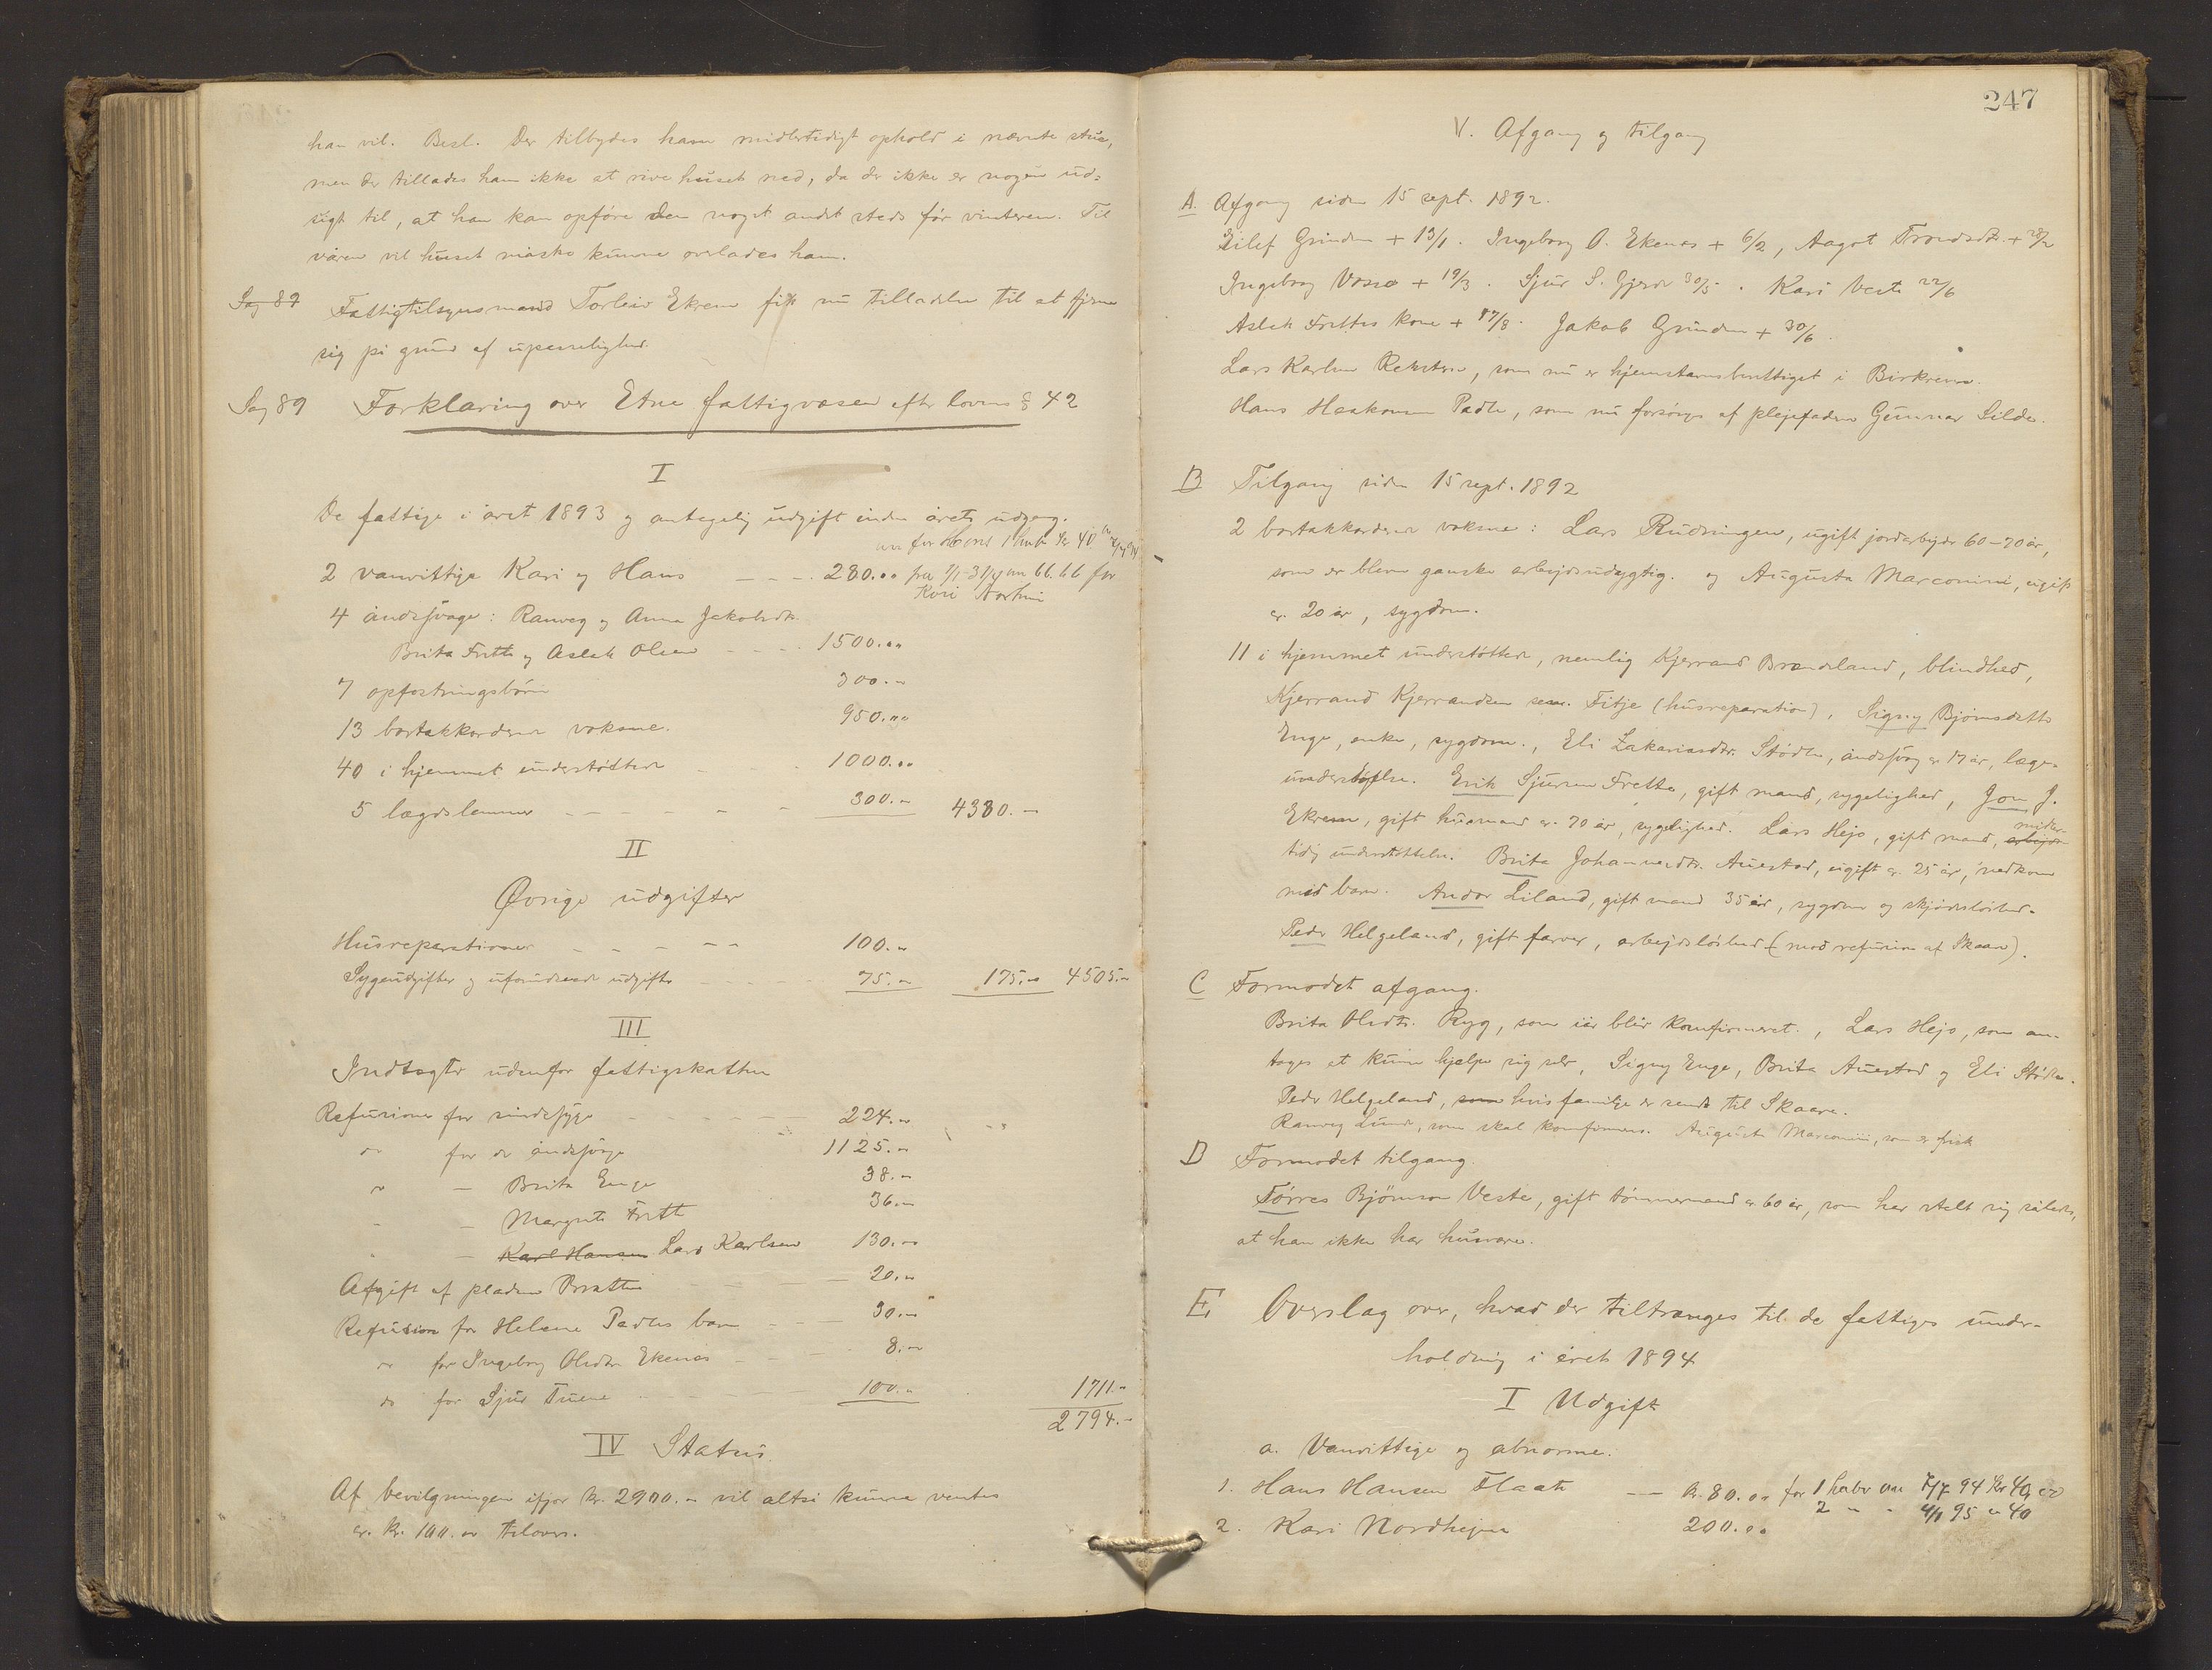 han vil. Besl. Der tilbydes ham midlertidigt ophold i nævnte stue,
men der tillades ham ikke at rive huset ned, da der ikke er nogen ud-
sigt til, at han kan opføre den noget andet steds før vinteren. Til
våren vil huset måske kunne overlades ham.
Sag 87 Fattigtilsynsmand Torleiv Ekrem fik nu tilladelse til at fjerne
sig på grund af upasselighed.
Sag 89 Forklaring over Etne fattigvæsen efter lovens § 42
I
De fattige i året 1893 og antagelig udgift inden årets udgang.
for 1 halvår kr 40
2 vanvittige Kari og Hans - - - 280.00 fra 1/1-31/4 66.66 for
Kari
4 åndssvage: Ranveg og Anna Jakobsdtr.
Brita Frette og Aslak Olsen - - - - 1500.00
7 opfostringsbørn 300.-
13 bortakkorderede voksne. 950.00
40 i hjemmet understøttede - - 1000.00
5 lægdslemmer - - - - - 300.- 4330.-
II
Øvrige udgifter
Husreparationer - - - - - 100.-
Sygeudgifter og uforudseede udgifter - - - - 75.- 175.- 4505.-
III
Indtægter udenfor fattigskatten
Refusioner for sindssyge - - - 224.-
" for de åndssvage 1125.-
" - Brita Enge 38.-
- Margrete Frette 36.-
- Karl Hansen Lars Karlsen 130.-
Afgift af pladsen Bratten - - - 20.-
Refusion for Helene Padles barn - - - 30.-
" for Ingeborg Olsdtr. Ekenæs - - - 8.-
do for Sjur Tuene - - - 100.- 1711.-
2794.-
IV Status.
Af bevilgningen ifjor kr. 2900.- vil altså kunne ventes
ca. kr. 100.00 tilovers.
247
V. Afgang og tilgang
A. Afgang siden 15 sept. 1892.
Eilef Grinden + 13/1. Ingeborg O. Ekenæs + 6/2, Aagot Trondsdtr. + 28/2
Ingeborg + 19/3. Sjur S. Gjerde 30/5. Kari Veste 22/6
Aslak Frettes kone + 17/8. Jakob Grinden + 30/6.
Lars Karlsen Reksten, som nu er hjemstavnsberettiget i Birkrem.
Hans Haakonsen Padle, som nu forsørges af plejefaderen Gunnar Silde.
B Tilgang siden 15 sept. 1892
2 bortakkorderede voksne: Lars Rudningen, ugift jordarbejder 60-70 år,
som er bleven ganske arbejdsudygtig. og Augusta Marconini, ugift
ca. 20 år, sygdom.
11 i hjemmet understøttede, nemlig Kjerrand Brandeland, blindhed,
Kjerrand Kjerrandsen sen. Fitje (husreparation), Signy Bjørnsdatter
Enge, enke, sygdom., Eli Zakariasdtr. Stødle, åndssvag ca 17 år, læge-
understøttelse. Erik Sjursen Frette, gift mand, sygelighed, Jon J.
Ekrem, gift husmand ca. 70 år, sygelighed. Lars Hejo, gift mand, midler-
tidig understøttelse. Brita Johannesdtr. Auestad, ugift ca. 25 år, nedkom
med barn. Andor Liland, gift mand 35 år, sygdom og skjødesløshed.
Peder Helgeland, gift farver, arbejdsløshed (mod refusion af Skaare).
C Formodet afgang.
Brita Olsdtr. Ryg, som iår blir konfirmeret., Lars Hejo, som an-
tages at kunne hjelpe sig selv, Signy Enge, Brita Auestad og Eli Stødle.
Peder Helgeland, som hvis familje er sendt til Skaare.
Ranveg Lunde, som skal konfirmeres. Augusta Marconini, som er frisk
D Formodet tilgang.
Tørres Bjørnson Veste, gift tømmermand ca 60 år, som har stelt sig således,
at han ikke har husvære.
E. Overslag over, hvad der tiltrænges til de fattiges under-
holdning i året 1894
I Udgift
a. Vanvittige og abnorme.
1. Hans Hansen Flaate - - kr. 80.00 for 1 halvår 7/7 94 kr 40,00
2 " " 4/1 95 " 40
2. Kari Nordhejm 200.00